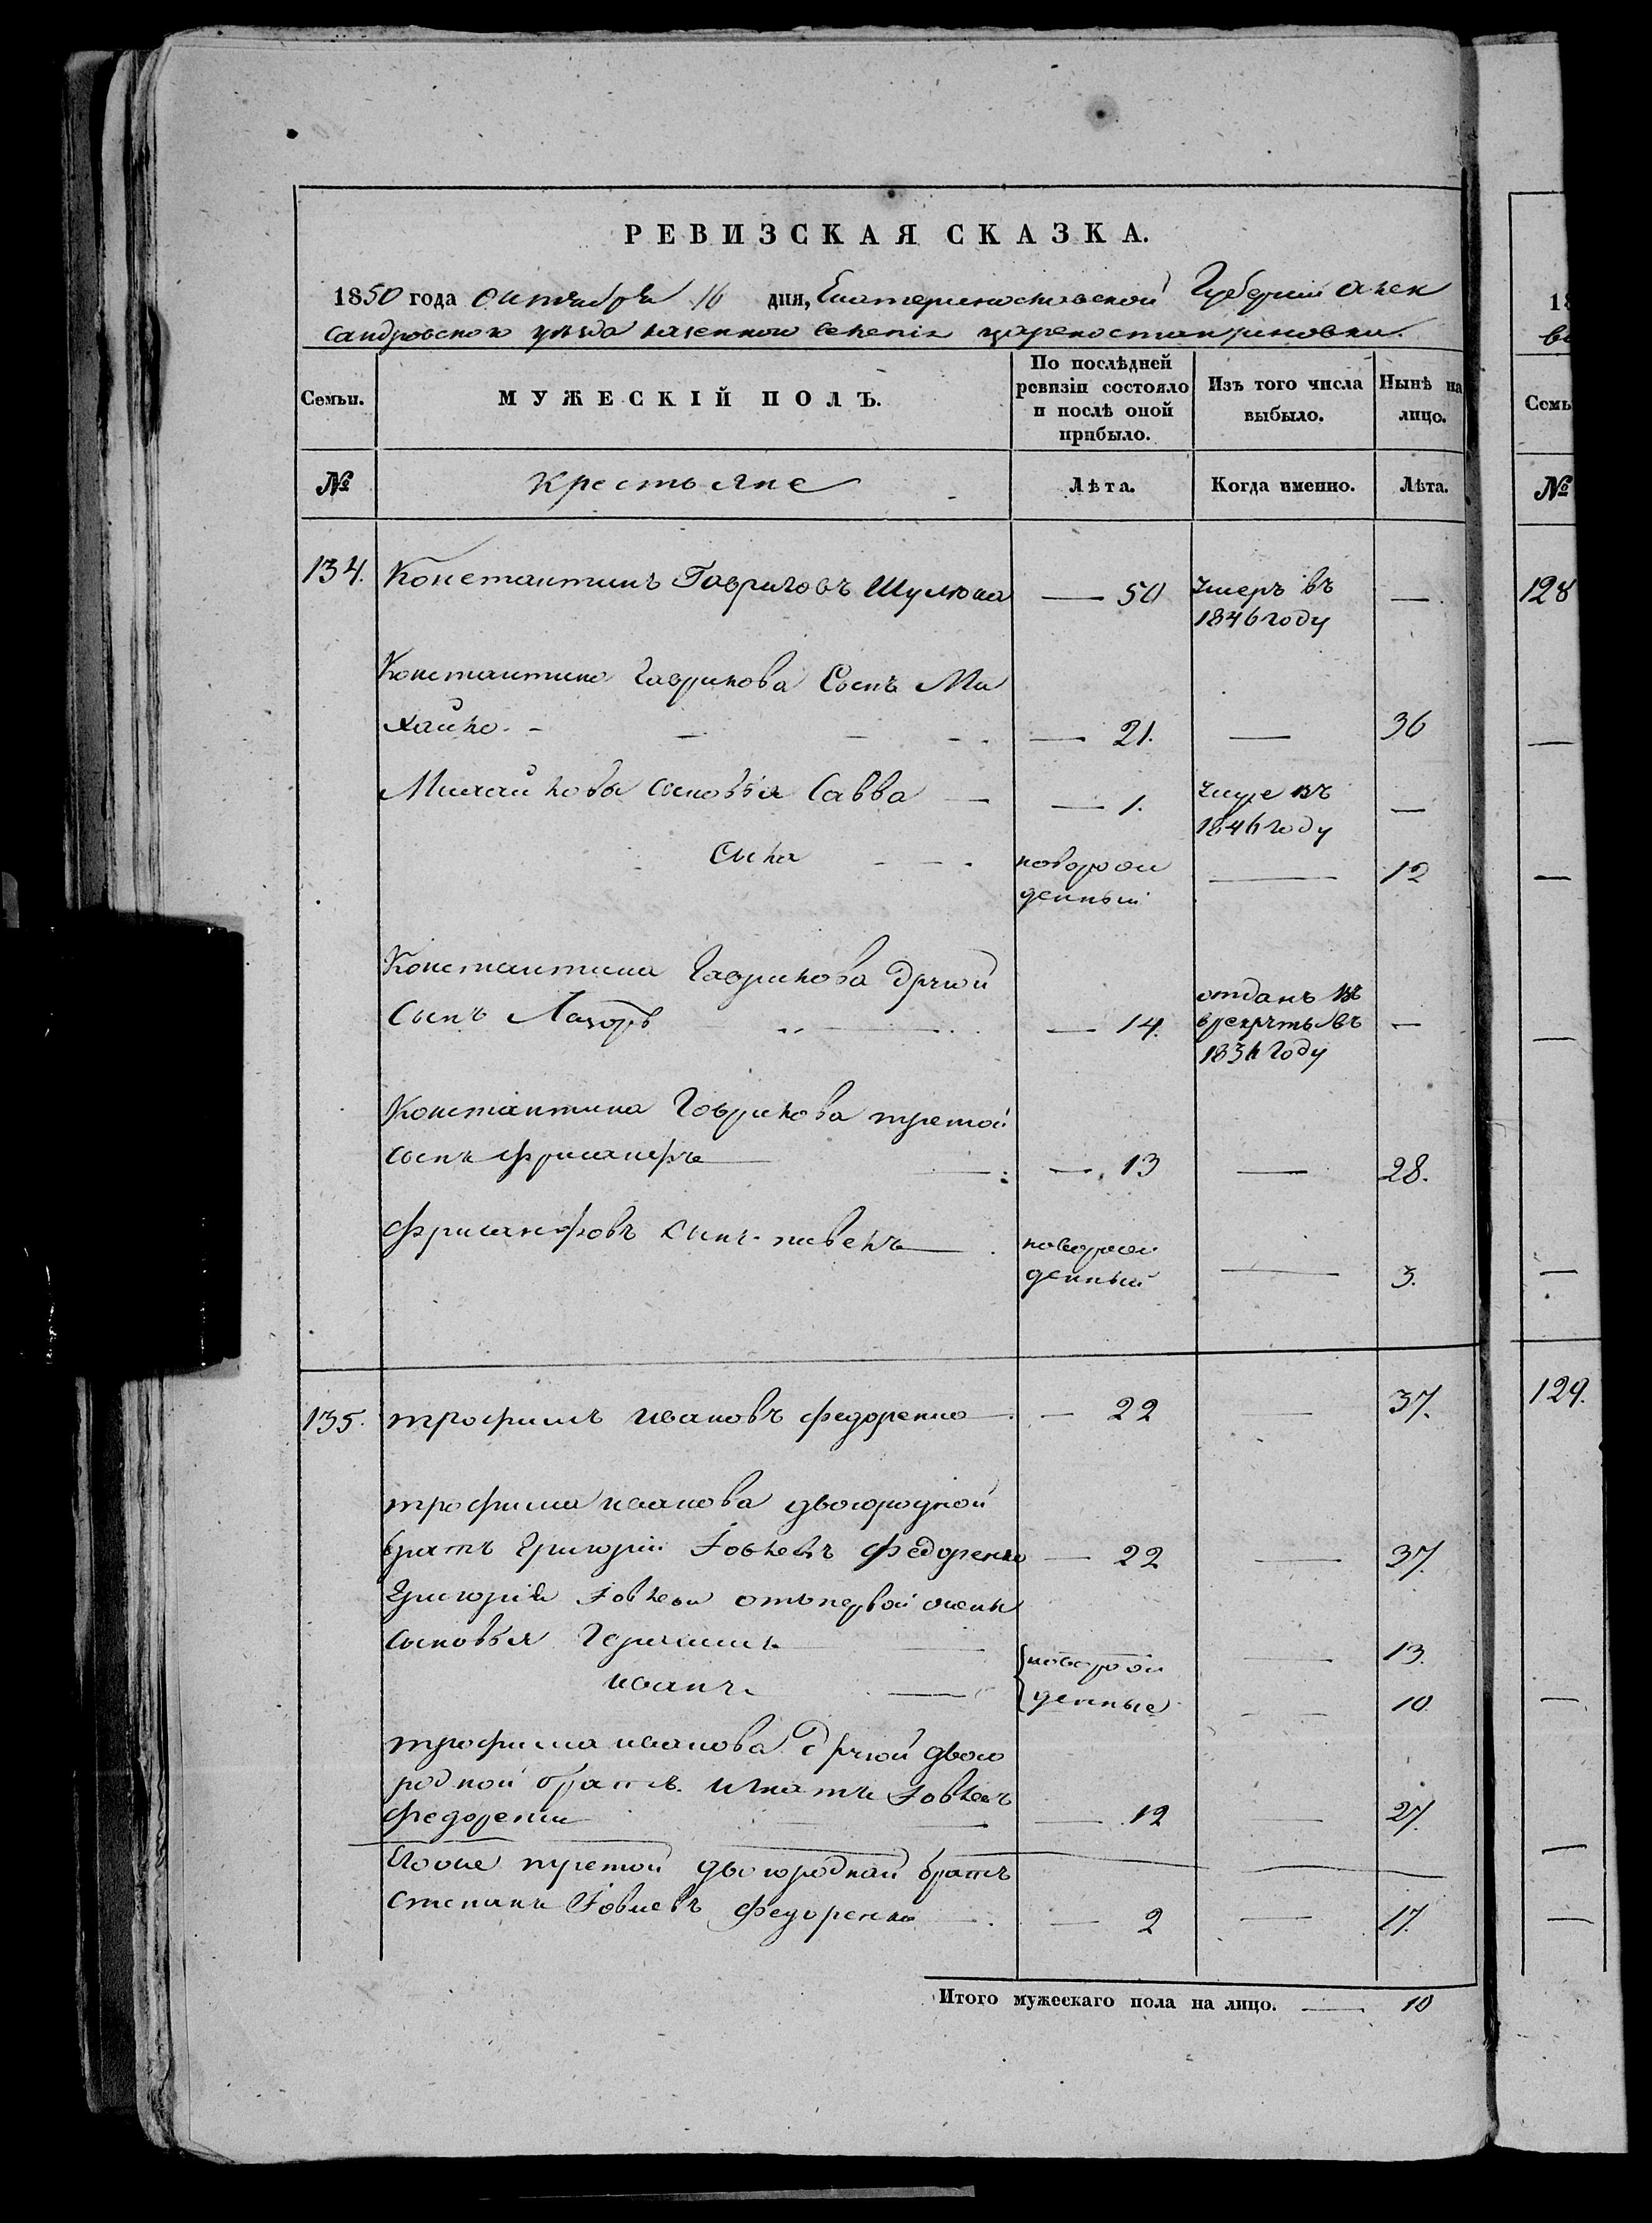 РЕВИЗСКАЯ СКАЗКА.
1850 года октября 16 дня, Екатеринославской Губерніи Алек
сандровского уѣзда казенного селенія
Семьи.
МУЖЕСКІЙ ПОЛЪ.
По послѣдней ревизіи состояло и послѣ оной прибыло.
Изъ того числа выбыло.
Нынѣ на лицо.
№
Крестьяне
Лѣта.
Когда именно.
Лѣта.
134. Константинъ Гавриловъ Шулюка — 50 умеръ въ —
1846 году
Константина Гаврилова Сынъ Ми
хайло - — 21. — 36
Михайловы сыновья Савва — — 1. умре въ —
1846 году
новорож — 12
денный
Константина Гаврилова другой
Сынъ Лазорь — 14. отданъ въ
рекруты въ —
году
Константина Гаврилова третой
сынъ — 13 — 28.
сынъ новорож
денный — 3.
135. трофимъ ивановъ федоренко — 22 — 37.
трофима иванова двоюродной
братъ Григорій Іовлевъ Федоренко — 22 — 37.
Григорія Іовлева отъ первой жены
сыновья Герасимъ новорож — 13.
иванъ — денные — 10
трофима иванова другой двою
родной братъ Игнатъ Іовлевъ
федоренко — 12 — 27.
Егоже третой двоюродной братъ
степанъ Іовлевъ федоренко — 2 — 17.
Итого мужескаго пола на лицо. — 10
18
Семь
№
128
129.